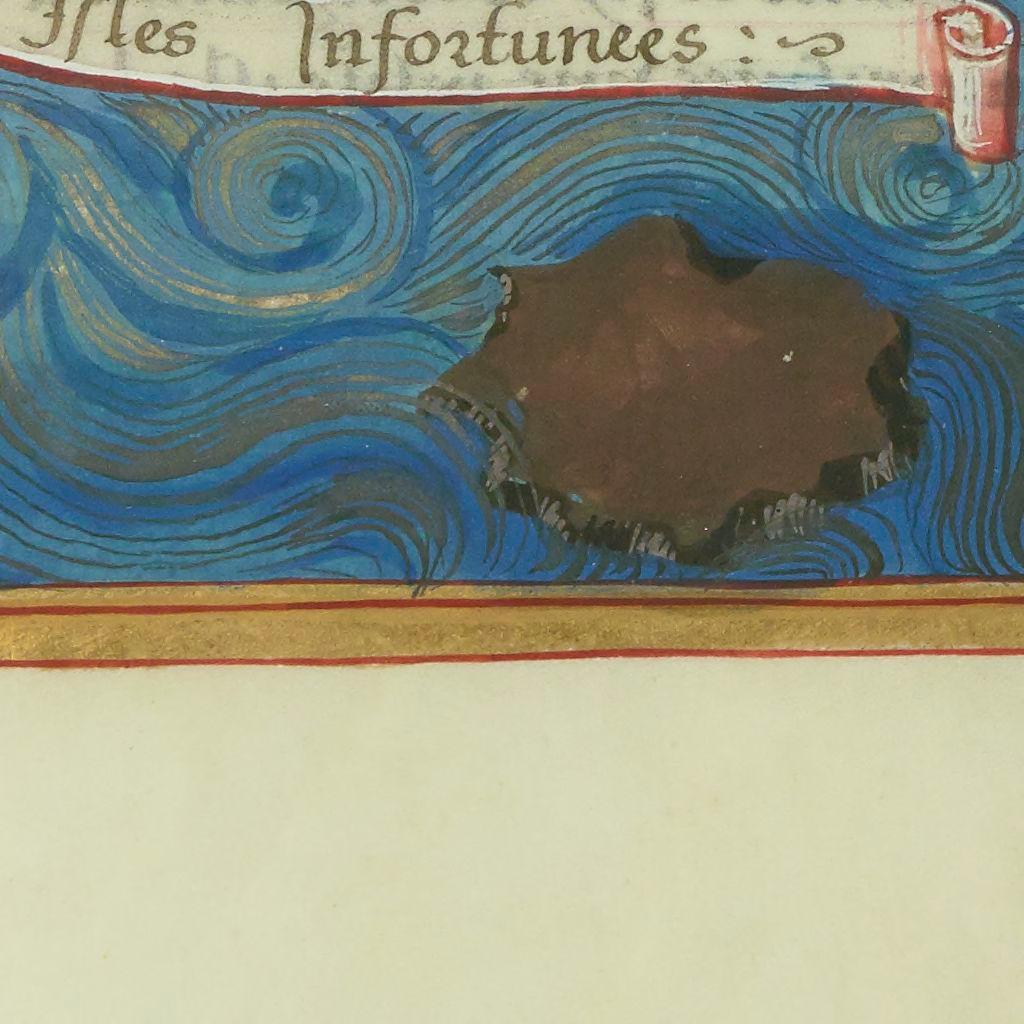 Isles Infortunees :~